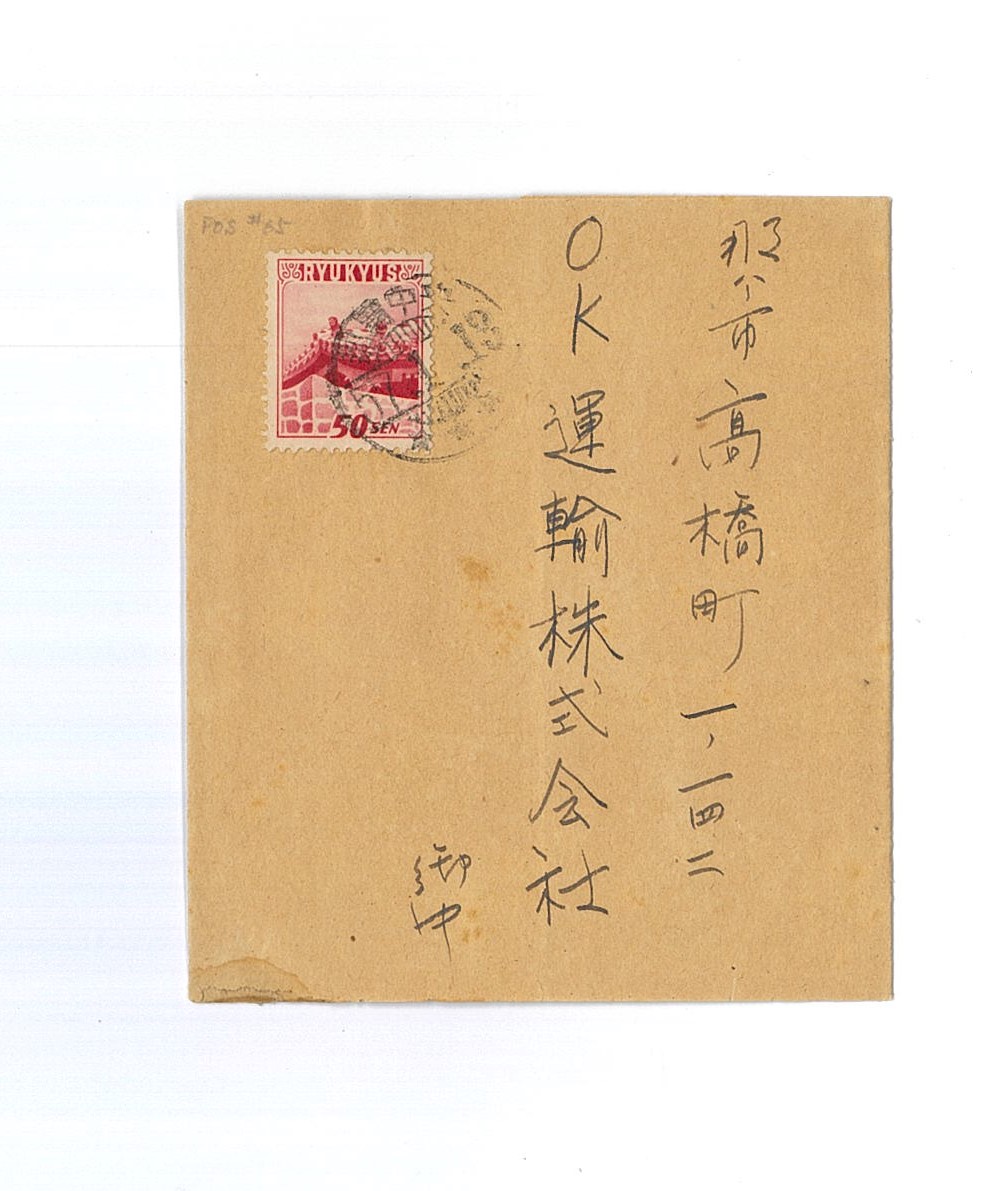 那ハ市高橋町一、一四二
OK運輸株式会社
御中
POS #65
RYUKYUS
50 SEN